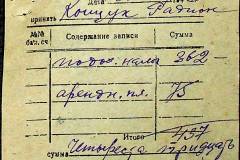 Дата
принять Кощук Радион
№№ бал. сч Содержание записи Сумма
подох. нал. 362-
арендн. пл. 75
Итого 437
сумма Четыреста тридцать